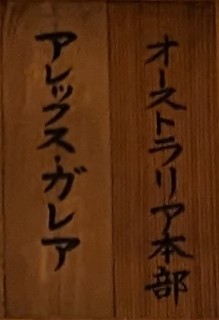 オーストラリア本部
アレックス・ガレア